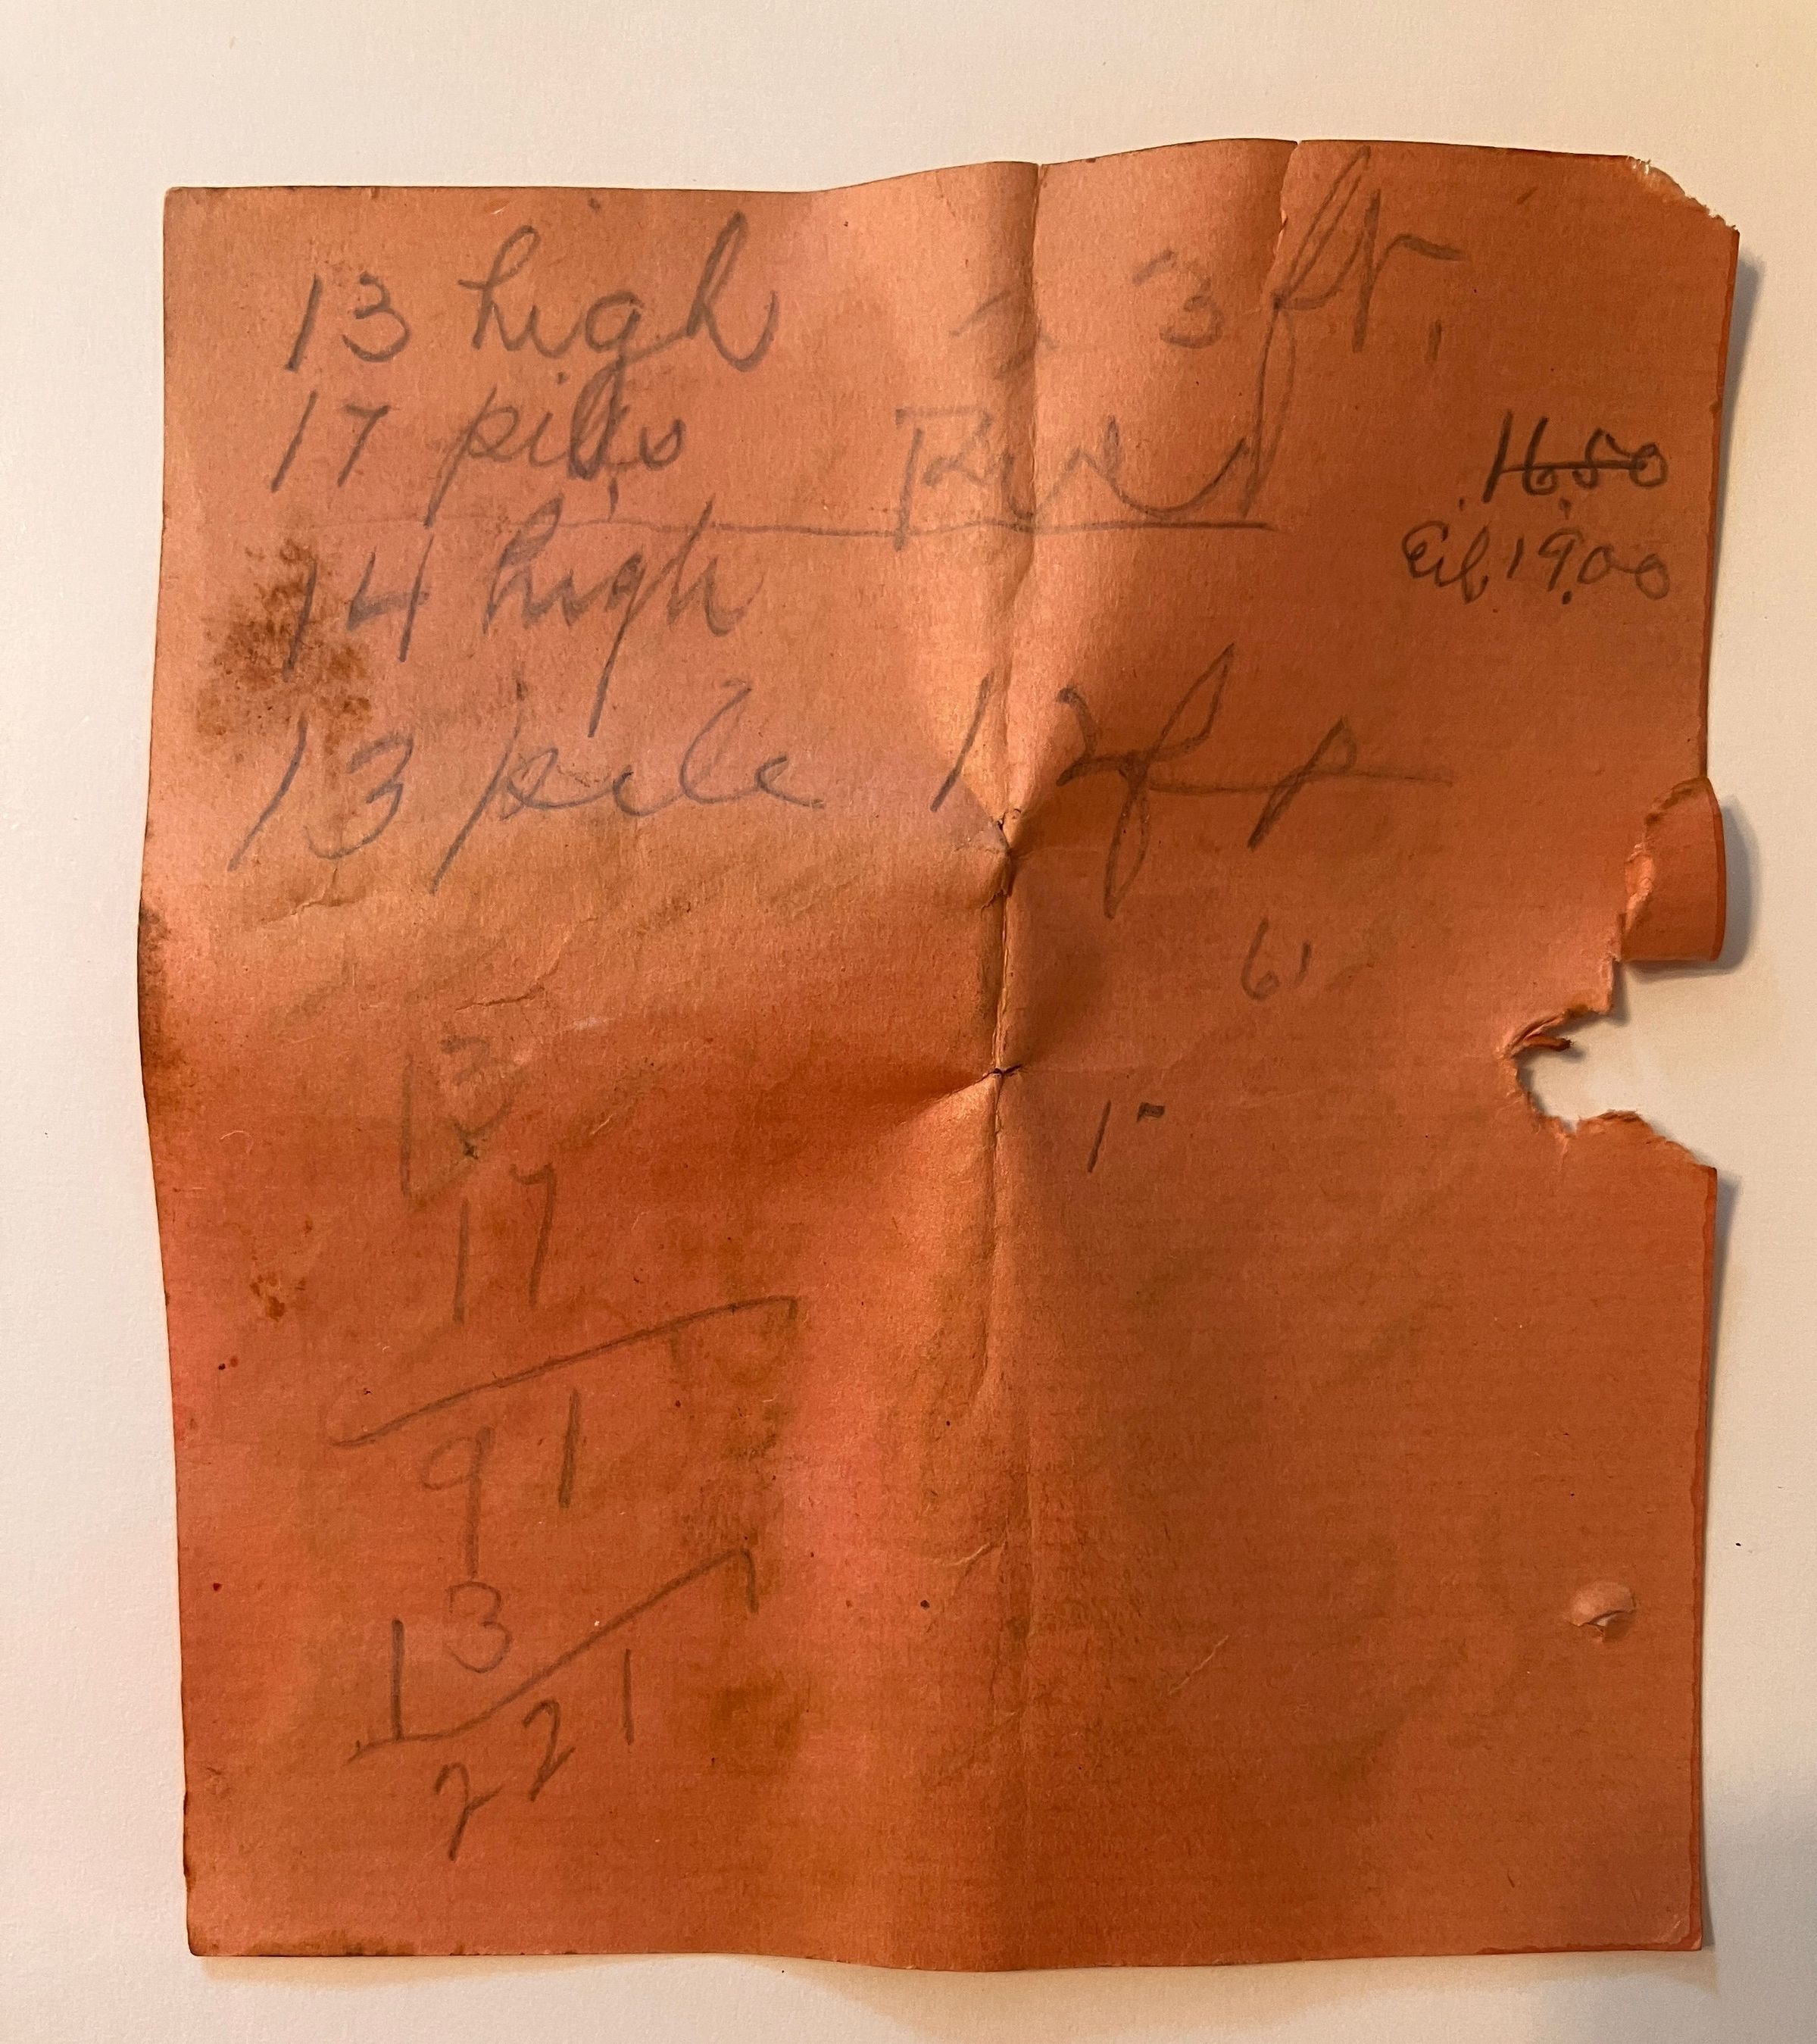 13 high 3 ft.
17 piles
16.50
14 high
19.00
13 pile 12 ft
61
13
17
91
13
221